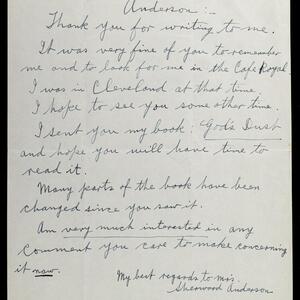 Anderson:-
Thank you for writing to me.
It was very fine of you to remember
me and to look for me in the Cafe Royal.
I was in Cleveland at that time.
I hope to see you some other time.
I sent you my book: God's Dust
and hope you will have time to
read it.
Many parts of the book have been
changed since you saw it.
Am very much interested in any
comment you care to make concerning
it now.
My best regards to mrs.
Sherwood Anderson